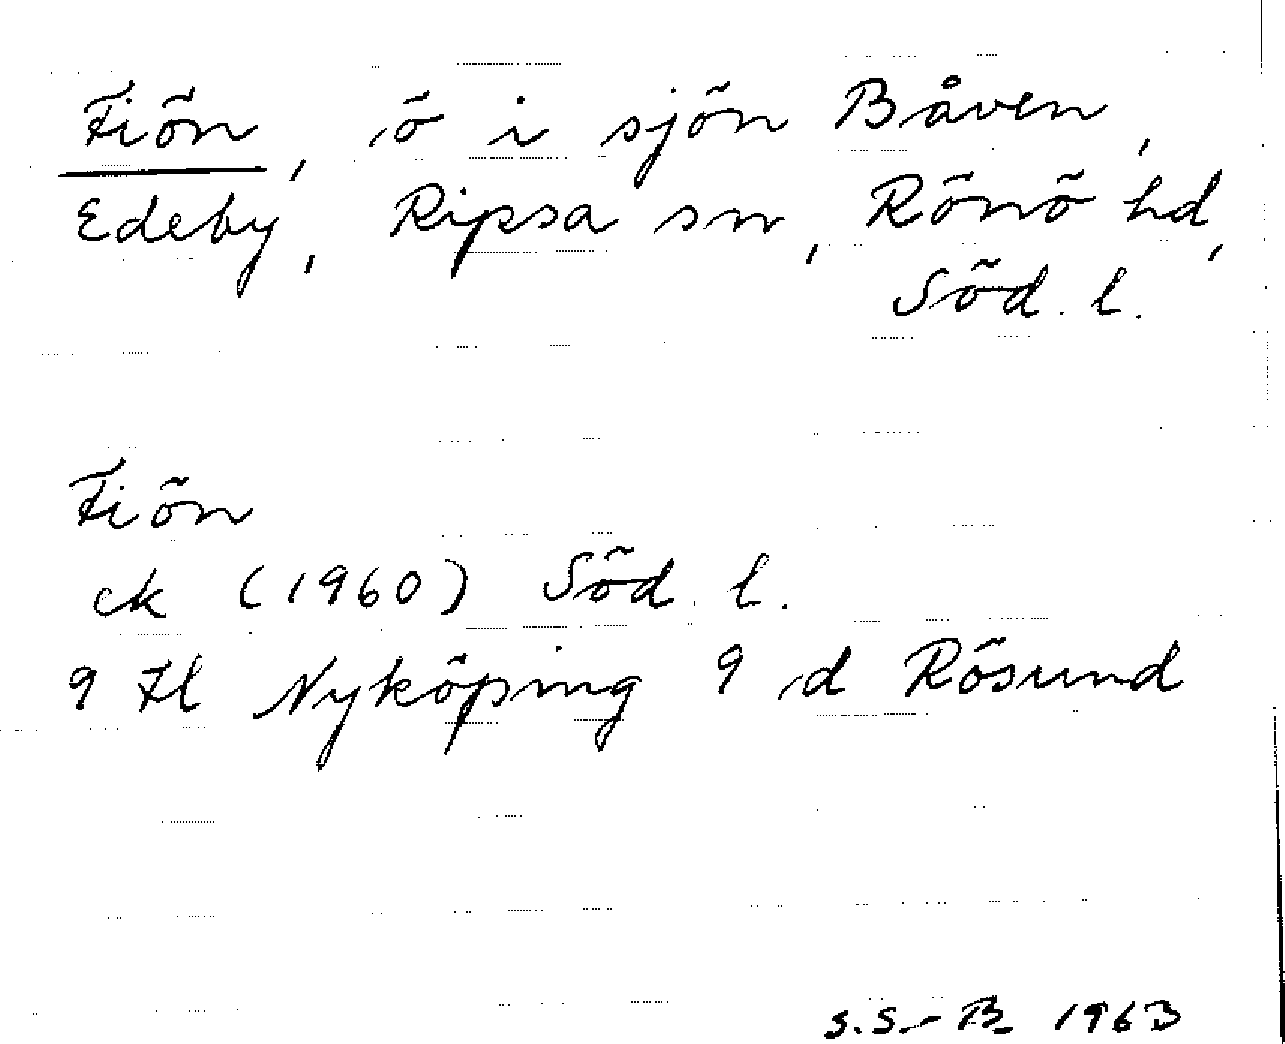 Fiön, ö i sjön Båven,
Edeby, Ripsa sn, Rönö hd,
Söd. l.
Fiön
ek (1960) Söd. l.
9 H Nyköping 9 d Rösund
S.S-B 1963